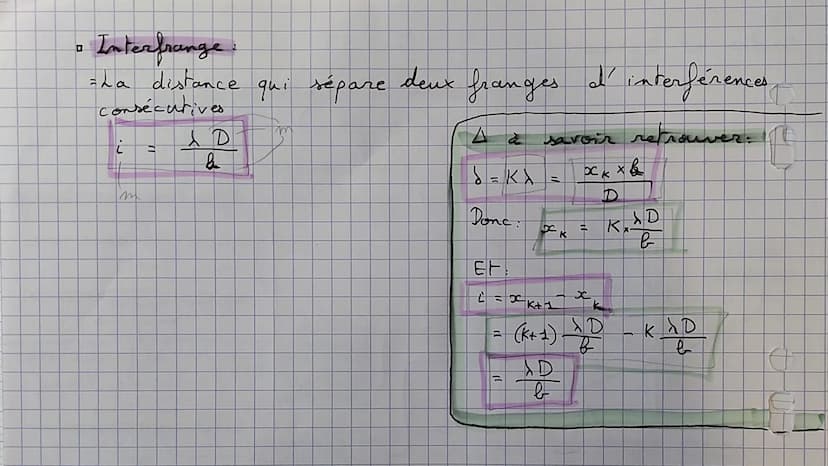 ▫ Interfrange :
= La distance qui sépare deux franges d'interférences
consécutives
i = λ D / b
m
m
Δ à savoir retrouver :
δ = Kλ = x_K × b / D
Donc : x_K = K × λ D / b
Et :
i = x_K+1 - x_K
= (K+1) λ D / b - K λ D / b
= λ D / b